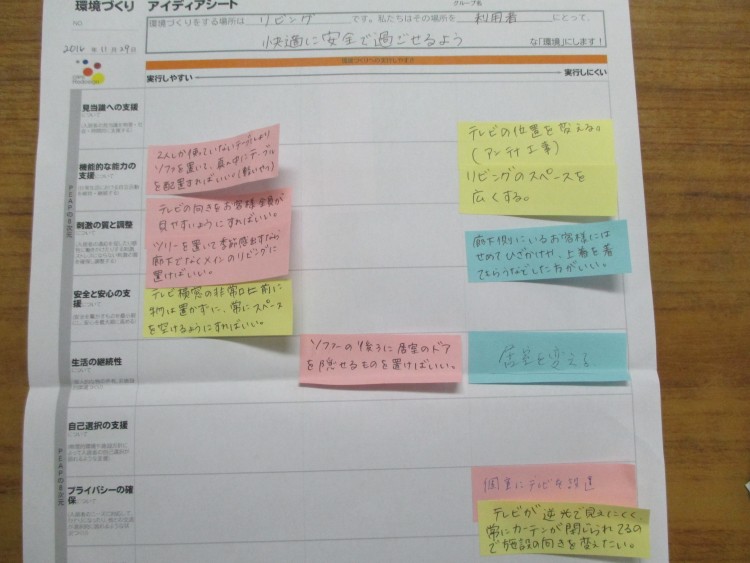 環境づくり アイディアシート
グループ名
NO.
環境づくりをする場所は リビング です。私たちはその場所を 利用者 にとって、
快適に安全で過ごせるよう な「環境」にします！
2016年11月29日
実行しやすい
実行しにくい
PEAPの8次元
見当識への支援
について
機能的な能力の
支援
について
刺激の質と調整
について
安全と安心の支
援
について
生活の継続性
について
自己選択の支援
について
プライバシーの確
保
について
PEAPの8次元
2人しか使っていないテーブルより
ソファを置いて、真ん中にテーブル
を配置すればいい(軽いやつ)
テレビの位置を変える。
(アンテナ工事)
リビングのスペースを
広くする。
テレビの向きをお客様全員が
見やすいようにすればいい。
ツリーを置いて季節感出すなら
廊下でなくメインのリビングに
置けばいい。
廊下側にいるお客様には
せめてひざかけや、上着を着
てもらうなどした方がいい。
テレビ横窓の非常口前に
物は置かずに、常にスペース
を空けるようにすればいい。
ソファーの後ろに居室のドア
を隠せるものを置けばいい。
居室を変える
個室にテレビを設置
テレビが逆光で見えにくく、
常にカーテンが閉じられてるの
で施設の向きを変えたい。